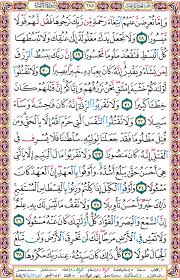 ٢٨٥
وَإِمَّا تُعْرِضَنَّ عَنْهُمُ ابْتِغَاءَ رَحْمَةٍ مِّن رَّبِّكَ تَرْجُوهَا فَقُل لَّهُمْ قَوْلًا
مَّيْسُورًا ٢٨ وَلَا تَجْعَلْ يَدَكَ مَغْلُولَةً إِلَىٰ عُنُقِكَ وَلَا تَبْسُطْهَا
كُلَّ الْبَسْطِ فَتَقْعُدَ مَلُومًا مَّحْسُورًا ٢٩ إِنَّ رَبَّكَ يَبْسُطُ الرِّزْقَ
لِمَن يَشَاءُ وَيَقْدِرُ إِنَّهُ كَانَ بِعِبَادِهِ خَبِيرًا بَصِيرًا ٣٠ وَلَا تَقْتُلُوا
أَوْلَادَكُمْ خَشْيَةَ إِمْلَاقٍ نَّحْنُ نَرْزُقُهُمْ وَإِيَّاكُمْ إِنَّ قَتْلَهُمْ كَانَ
خِطْئًا كَبِيرًا ٣١ وَلَا تَقْرَبُوا الزِّنَىٰ إِنَّهُ كَانَ فَاحِشَةً وَسَاءَ
سَبِيلًا ٣٢ وَلَا تَقْتُلُوا النَّفْسَ الَّتِي حَرَّمَ اللَّهُ إِلَّا بِالْحَقِّ وَمَن
قُتِلَ مَظْلُومًا فَقَدْ جَعَلْنَا لِوَلِيِّهِ سُلْطَانًا فَلَا يُسْرِف فِّي
الْقَتْلِ إِنَّهُ كَانَ مَنصُورًا ٣٣ وَلَا تَقْرَبُوا مَالَ الْيَتِيمِ إِلَّا بِالَّتِي
هِيَ أَحْسَنُ حَتَّىٰ يَبْلُغَ أَشُدَّهُ وَأَوْفُوا بِالْعَهْدِ إِنَّ الْعَهْدَ كَانَ
مَسْئُولًا ٣٤ وَأَوْفُوا الْكَيْلَ إِذَا كِلْتُمْ وَزِنُوا بِالْقِسْطَاسِ الْمُسْتَقِيمِ
ذَٰلِكَ خَيْرٌ وَأَحْسَنُ تَأْوِيلًا ٣٥ وَلَا تَقْفُ مَا لَيْسَ لَكَ بِهِ عِلْمٌ
إِنَّ السَّمْعَ وَالْبَصَرَ وَالْفُؤَادَ كُلُّ أُولَٰئِكَ كَانَ عَنْهُ مَسْئُولًا ٣٦
وَلَا تَمْشِ فِي الْأَرْضِ مَرَحًا إِنَّكَ لَن تَخْرِقَ الْأَرْضَ وَلَن تَبْلُغَ
الْجِبَالَ طُولًا ٣٧ كُلُّ ذَٰلِكَ كَانَ سَيِّئُهُ عِندَ رَبِّكَ مَكْرُوهًا ٣٨